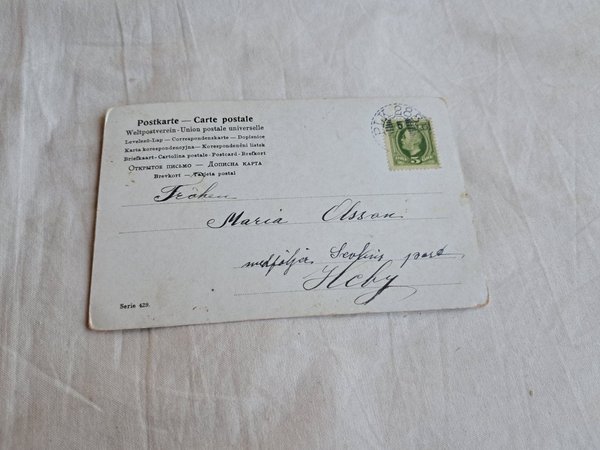 Postkarte — Carte postale
Weltpostverein - Union postale universelle
Levelezö-Lap — Correspondenzkarte — Dopisnice
Karta korespondencyjna — Korespondenční lístek
Briefkaart - Cartolina postale - Postcard - Brefkort
Открытое письмо — Дописна карта
Brevkort — Tarjeta postal
Fröken
Maria Olsson
medföljer post
Heby
Serie 429.
5